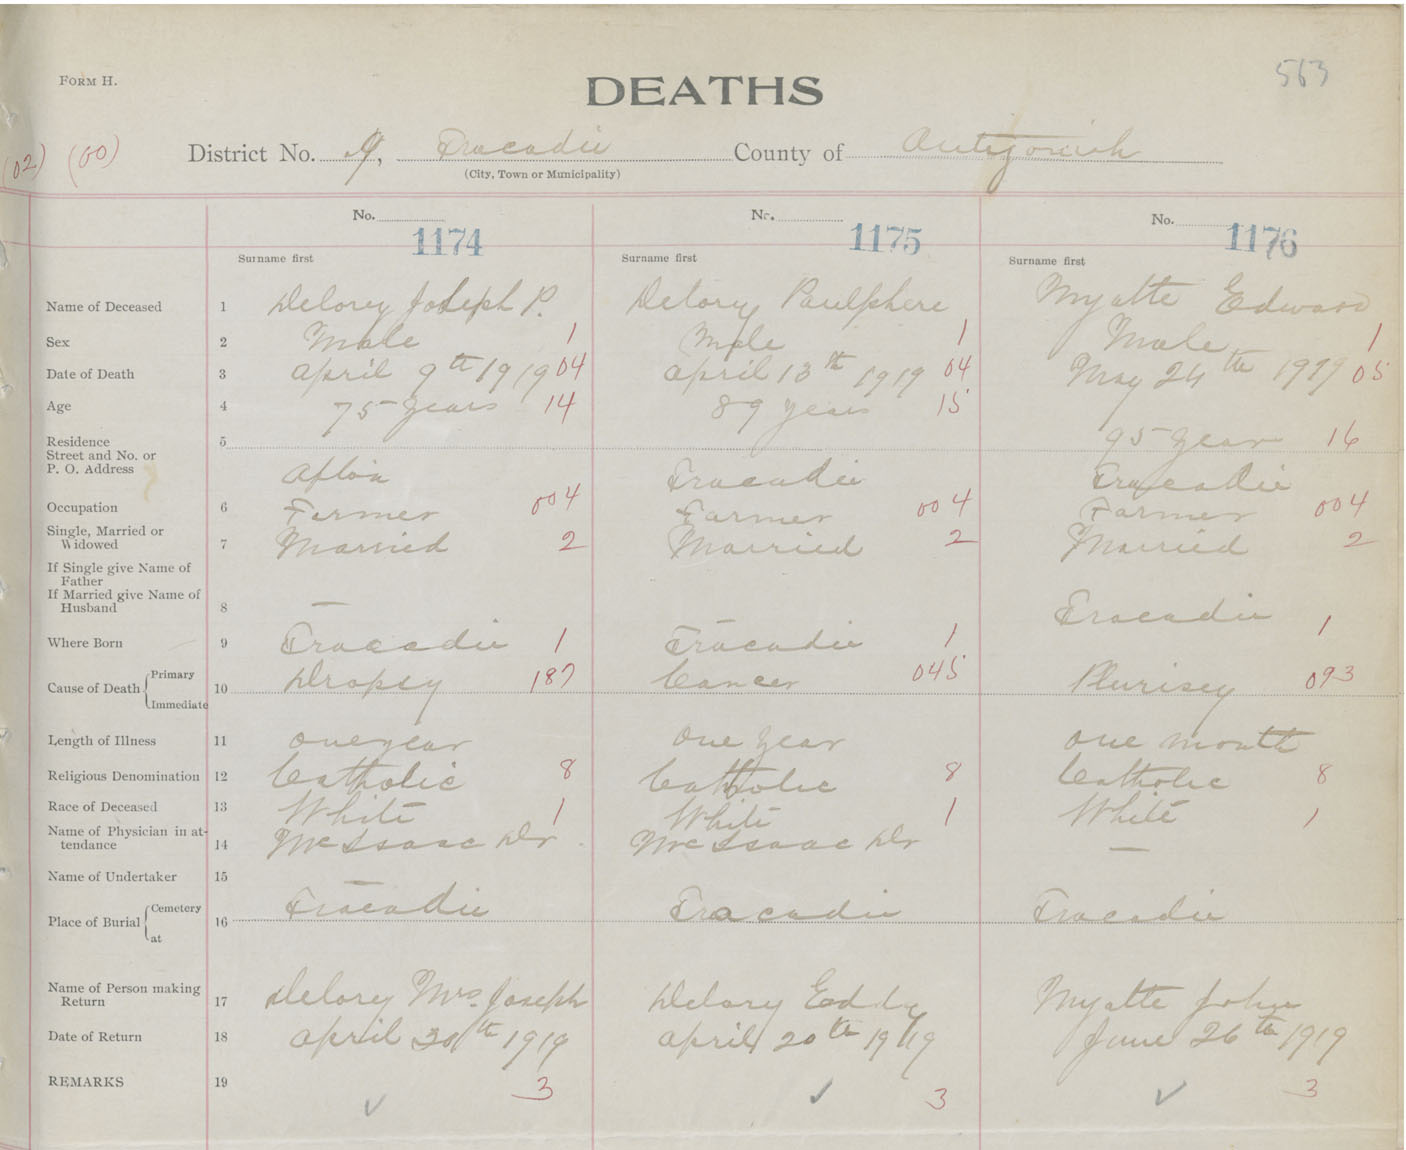 563
FORM H.
DEATHS
(02) (00) District No. 9, Tracadie County of Antigonish
(City, Town or Municipality)
No. 1174 No. 1175 No. 1176
Surname first Surname first Surname first
Name of Deceased 1 Delorey Joseph P. Delory Paulphere Myatte Edward
Sex 2 Male 1 Male 1 Male 1
Date of Death 3 April 9th 1919 04 April 13th 1919 04 May 24th 1919 05
Age 4 75 years 14 89 years 15
Residence 5 95 year 16
Street and No. or
P. O. Address Afton Tracadie Tracadie
Occupation 6 Farmer 004 Farmer 004 Farmer 004
Single, Married or
Widowed 7 Married 2 Married 2 Married 2
If Single give Name of
Father
If Married give Name of
Husband 8 — Tracadie 1
Where Born 9 Tracadie 1 Tracadie 1
Cause of Death { Primary
10 Dropsy 187 Cancer 045 Plurisey 093
Immediate
Length of Illness 11 one year one year one month
Religious Denomination 12 Catholic 8 Catholic 8 Catholic 8
Race of Deceased 13 White 1 White 1 White 1
Name of Physician in at-
tendance 14 McIsaac Dr McIsaac Dr —
Name of Undertaker 15 —
Place of Burial { Cemetery
16 Tracadie Tracadie Tracadie
at
Name of Person making
Return 17 Delorey Mrs. Joseph Delory Eddy Myatte John
Date of Return 18 April 30th 1919 April 20th 1919 June 26th 1919
REMARKS 19 ✓ 3 ✓ 3 ✓ 3